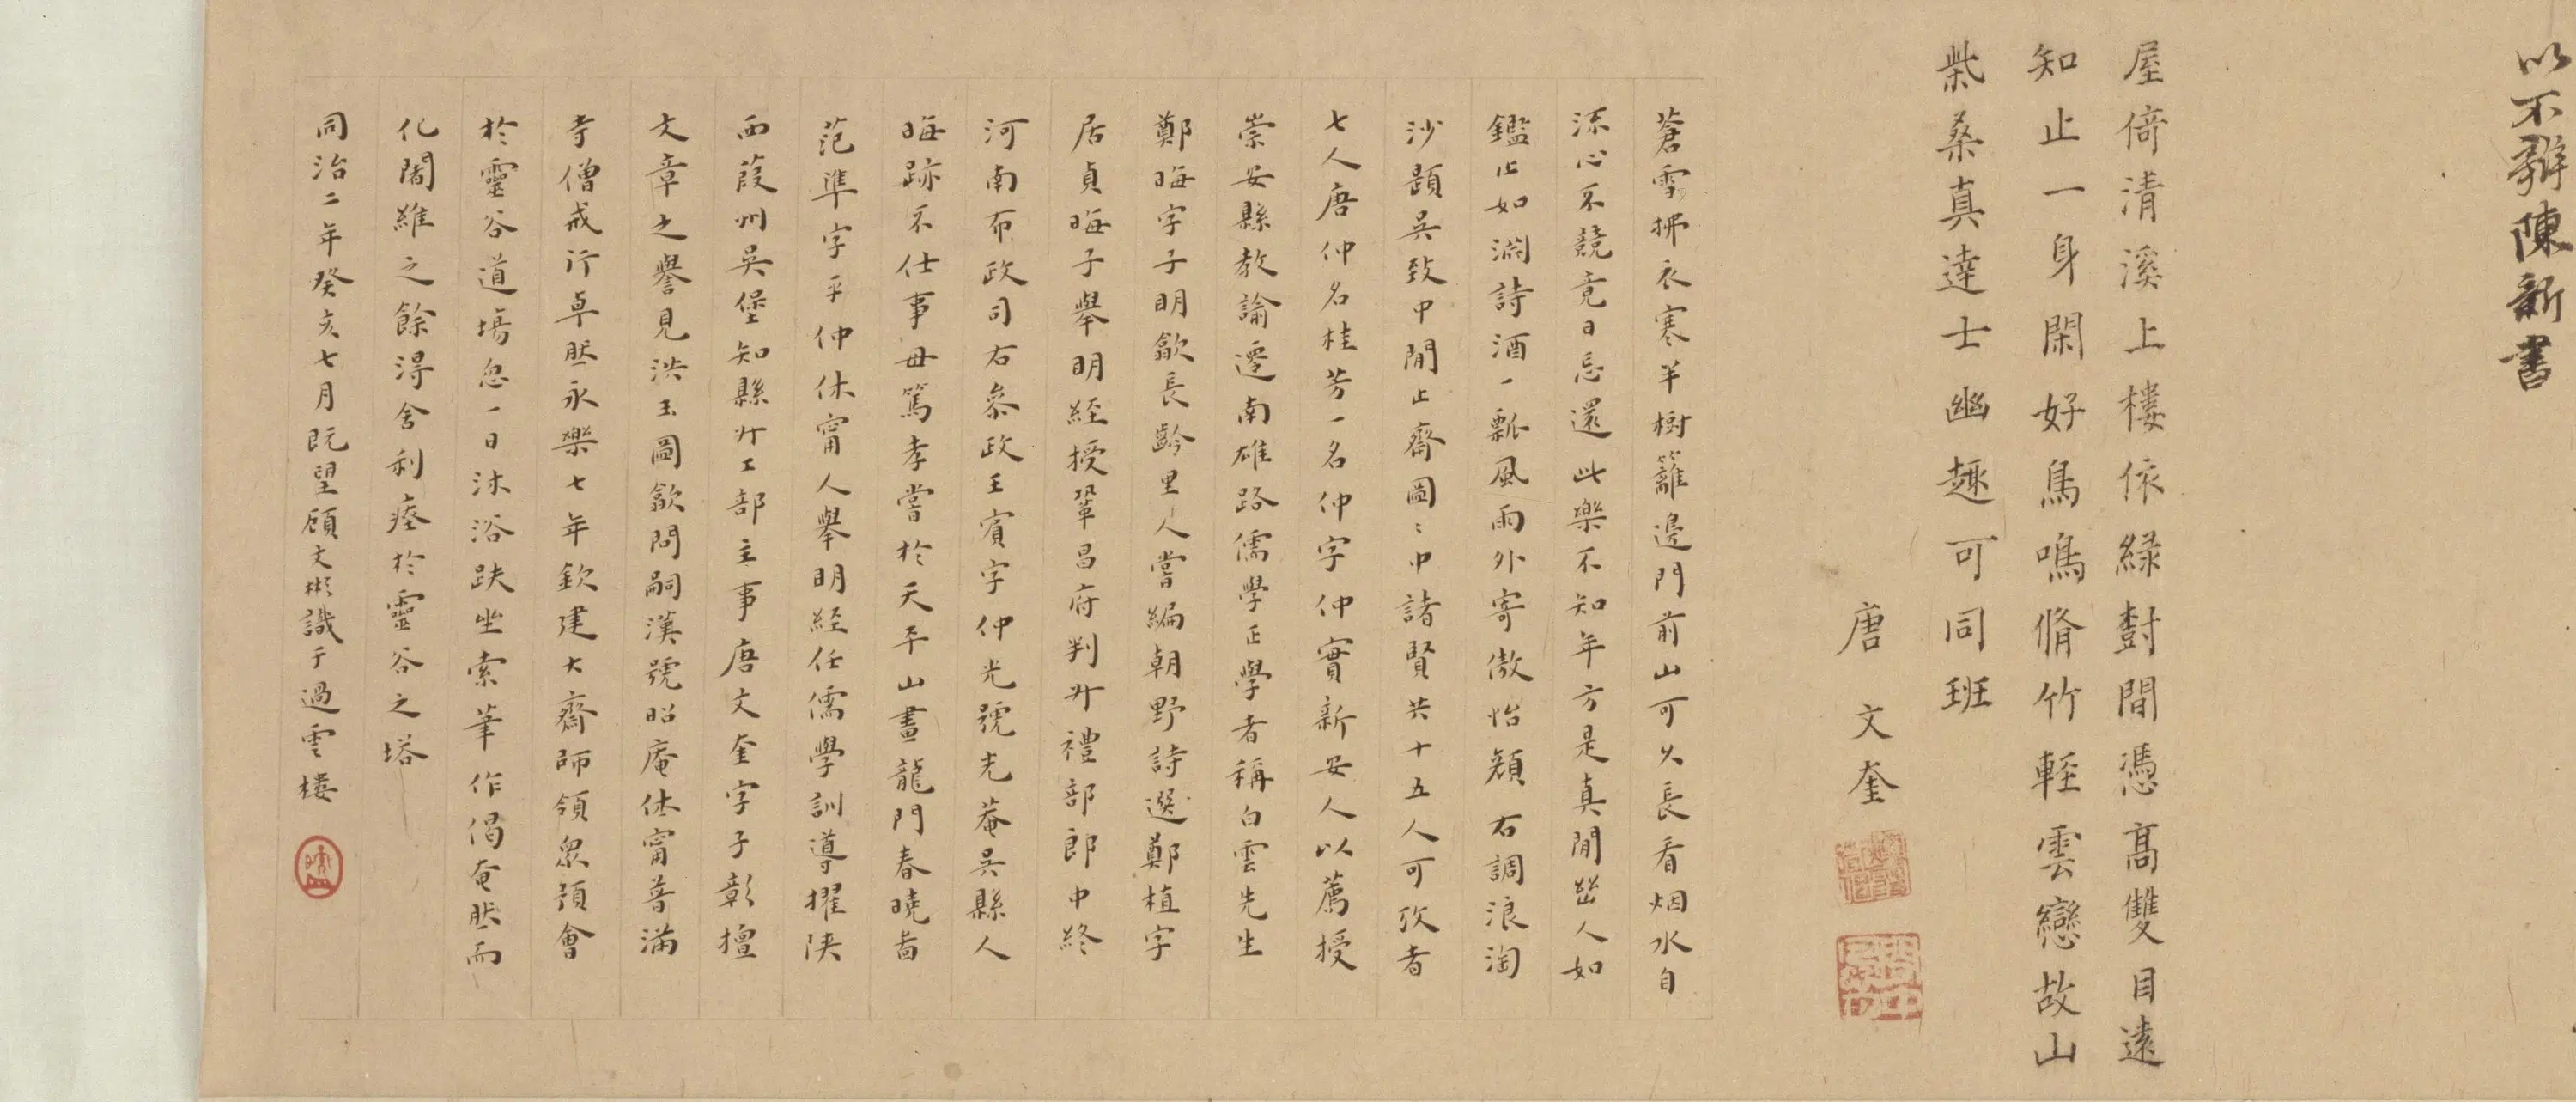 以不辭陳新書
屋倚清溪上樓依綠樹間憑高雙目遠
知止一身閑好鳥鳴脩竹輕雲戀故山
柴桑真達士幽趣可同班
唐文奎
蒼雪拂衣寒半樹籬邊門前山可久長看烟水自
流心不競竟日忘還此樂不知年方是真閒世人如
鑑止如淵詩酒一瓢風雨外寄傲怡顏右調浪淘
沙題吳致中閒止齋圖〻中諸賢共十五人可攷者
七人唐仲名桂芳一名仲字仲實新安人以薦授
崇安縣教諭遷南雄路儒學正學者稱白雲先生
鄭晦字子明歙長齡里人嘗編朝野詩選鄭植字
居貞晦子舉明經授鞏昌府判升禮部郎中終
河南布政司右參政王賓字仲光號光菴吳縣人
晦跡不仕事母篤孝嘗於天平山畫龍門春曉圖
范準字平仲休甯人舉明經任儒學訓導擢陝
西葭州吳堡知縣升工部主事唐文奎字子彰擅
文章之譽見洪玉圖歙問嗣漢號昭庵休甯普滿
寺僧戒行卓然永樂七年欽建大齋師領眾預會
於靈谷道場忽一日沐浴趺坐索筆作偈奄然而
化闍維之餘得舍利瘞於靈谷之塔
同治二年癸亥七月既望顧文彬識于過雲樓